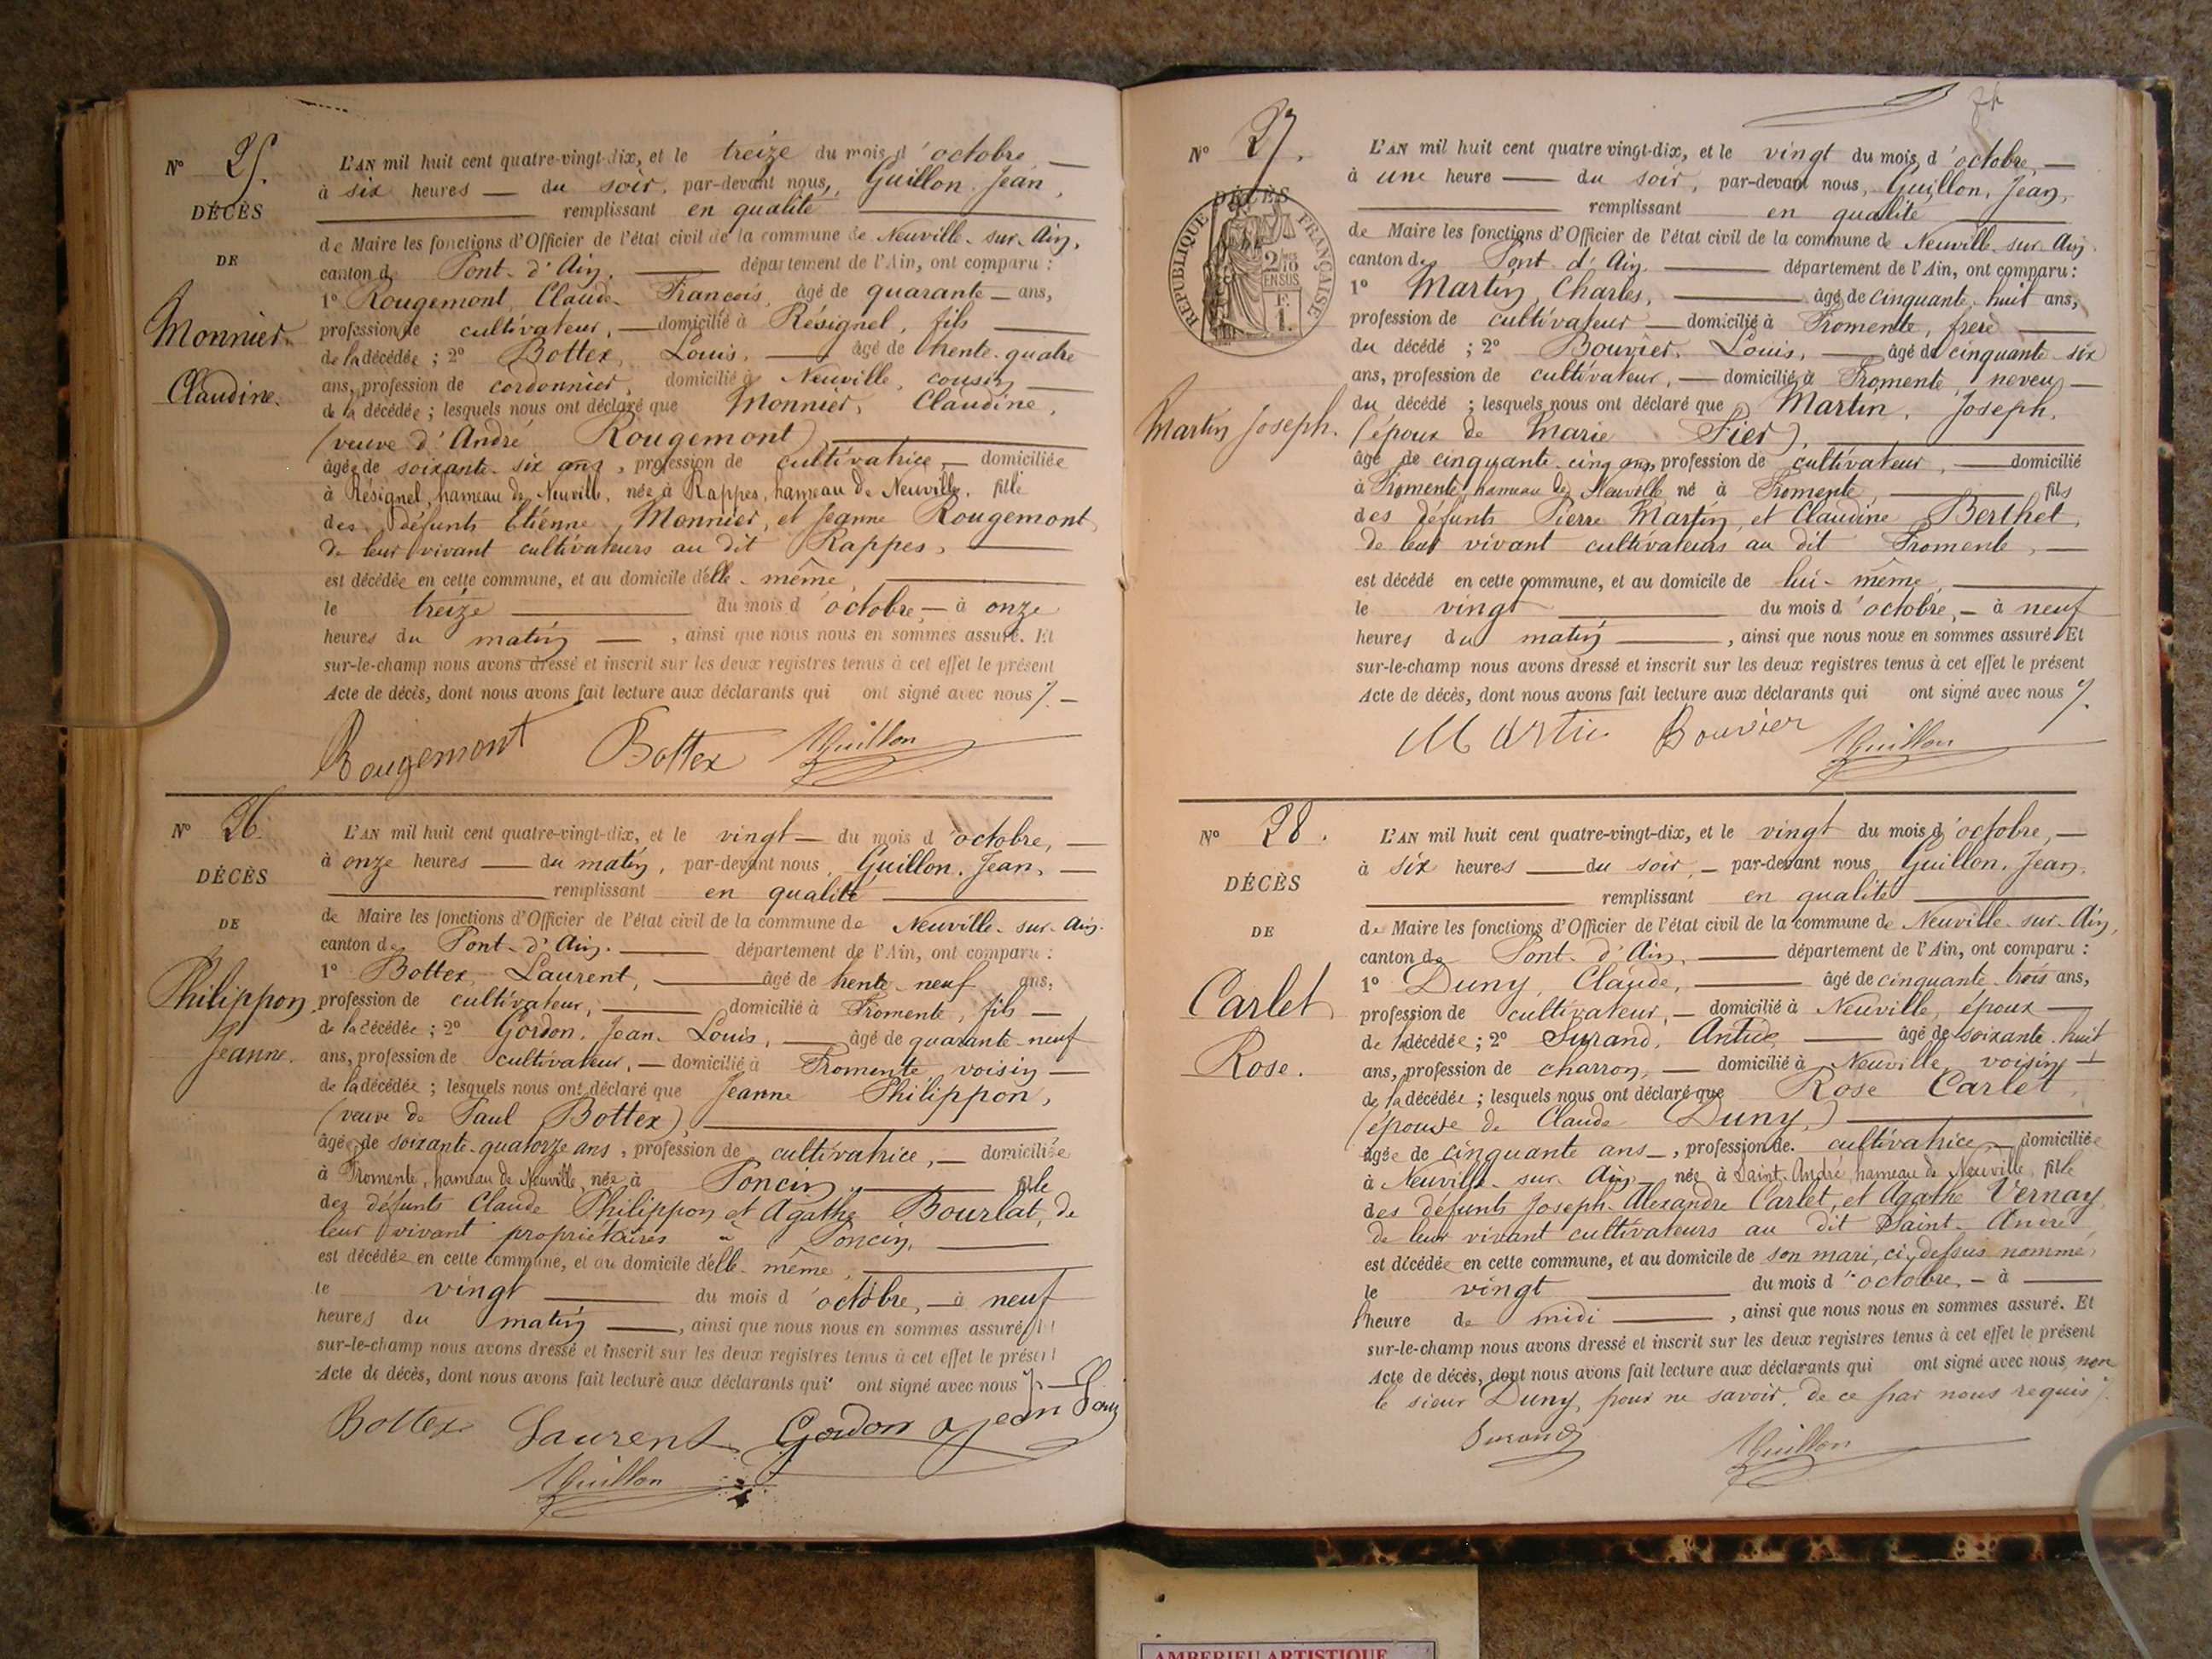 N° 25.
DÉCÈS
DE
Monnier
Claudine.
L'AN mil huit cent quatre-vingt-dix, et le treize du mois d'octobre
à six heures du soir, par-devant nous, Guillon, Jean,
remplissant en qualité
de Maire les fonctions d'Officier de l'état civil de la commune de Neuville-sur-Ain,
canton de Pont-d'Ain. département de l'Ain, ont comparu :
1° Rougemont, Claude-François, âgé de quarante ans,
profession de cultivateur, domicilié à Résignel, fils
de la décédée ; 2° Bottex, Louis, âgé de trente-quatre
ans, profession de cordonnier, domicilié à Neuville, cousin
de la décédée ; lesquels nous ont déclaré que Monnier, Claudine,
(veuve d'André Rougemont),
âgée de soixante-six ans, profession de cultivatrice, domiciliée
à Résignel, hameau de Neuville, née à Rappes, hameau de Neuville, fille
des défunts Etienne Monnier, et Jeanne Rougemont,
de leur vivant cultivateurs au dit Rappes,
est décédée en cette commune, et au domicile d'elle-même,
le treize du mois d'octobre, à onze
heures du matin, ainsi que nous nous en sommes assuré. Et
sur-le-champ nous avons dressé et inscrit sur les deux registres tenus à cet effet le présent
Acte de décès, dont nous avons fait lecture aux déclarants qui ont signé avec nous
Rougemont Bottex Guillon
N° 26.
DÉCÈS
DE
Philippon
Jeanne.
L'AN mil huit cent quatre-vingt-dix, et le vingt du mois d'octobre,
à onze heures du matin, par-devant nous, Guillon, Jean,
remplissant en qualité
de Maire les fonctions d'Officier de l'état civil de la commune de Neuville-sur-Ain.
canton de Pont-d'Ain. département de l'Ain, ont comparu :
1° Bottex, Laurent, âgé de trente-neuf ans,
profession de cultivateur, domicilié à Fromente, fils
de la décédée ; 2° Gordon, Jean-Louis, âgé de quarante-neuf
ans, profession de cultivateur, domicilié à Fromente, voisin
de la décédée ; lesquels nous ont déclaré que Jeanne Philippon,
(veuve de Paul Bottex),
âgée de soixante-quatorze ans, profession de cultivatrice, domiciliée
à Fromente, hameau de Neuville, née à Poncin, fille
des défunts Claude Philippon et Agathe Bourlat, de
leur vivant propriétaires à Poncin,
est décédée en cette commune, et au domicile d'elle-même,
le vingt du mois d'octobre, à neuf
heures du matin, ainsi que nous nous en sommes assuré. Et
sur-le-champ nous avons dressé et inscrit sur les deux registres tenus à cet effet le présent
Acte de décès, dont nous avons fait lecture aux déclarants qui ont signé avec nous
Bottex Laurent Gordon Jean Louis
Guillon
N° 27.
DÉCÈS
RÉPUBLIQUE FRANÇAISE
2/10
EN SUS
F.
1.
Martin Joseph.
L'AN mil huit cent quatre vingt-dix, et le vingt du mois d'octobre,
à une heure du soir, par-devant nous, Guillon, Jean,
remplissant en qualité
de Maire les fonctions d'Officier de l'état civil de la commune de Neuville-sur-Ain.
canton de Pont-d'Ain. département de l'Ain, ont comparu :
1° Martin, Charles, âgé de cinquante-huit ans,
profession de cultivateur domicilié à Fromente, frère
du décédé ; 2° Bouvier, Louis, âgé de cinquante-six
ans, profession de cultivateur, domicilié à Fromente, neveu
du décédé ; lesquels nous ont déclaré que Martin, Joseph,
(époux de Marie Fier),
âgé de cinquante-cinq ans, profession de cultivateur, domicilié
à Fromente, hameau de Neuville né à Fromente, fils
des défunts Pierre Martin, et Claudine Berthet,
de leur vivant cultivateurs au dit Fromente,
est décédé en cette commune, et au domicile de lui-même,
le vingt du mois d'octobre, à neuf
heures du matin, ainsi que nous nous en sommes assuré. Et
sur-le-champ nous avons dressé et inscrit sur les deux registres tenus à cet effet le présent
Acte de décès, dont nous avons fait lecture aux déclarants qui ont signé avec nous
Martin Bouvier Guillon
N° 28.
DÉCÈS
DE
Carlet
Rose.
L'AN mil huit cent quatre-vingt-dix, et le vingt du mois d'octobre,
à six heures du soir, par-devant nous, Guillon, Jean,
remplissant en qualité
de Maire les fonctions d'Officier de l'état civil de la commune de Neuville-sur-Ain,
canton de Pont-d'Ain, département de l'Ain, ont comparu :
1° Duny, Claude, âgé de cinquante-trois ans,
profession de cultivateur, domicilié à Neuville, époux
de la décédée ; 2° Surand, Antide, âgé de soixante-huit
ans, profession de charron, domicilié à Neuville, voisin
de la décédée ; lesquels nous ont déclaré que Rose Carlet,
(épouse de Claude Duny,)
âgée de cinquante ans, profession de cultivatrice, domiciliée
à Neuville-sur-Ain, née à Saint-André hameau de Neuville, fille
des défunts Joseph-Alexandre Carlet, et Agathe Vernay
de leur vivant cultivateurs au dit Saint-André
est décédée en cette commune, et au domicile de son mari, ci-dessus nommé,
le vingt du mois d'octobre, à
l'heure de midi, ainsi que nous nous en sommes assuré. Et
sur-le-champ nous avons dressé et inscrit sur les deux registres tenus à cet effet le présent
Acte de décès, dont nous avons fait lecture aux déclarants qui ont signé avec nous, non
le sieur Duny, pour ne savoir, de ce par nous requis.
Surand Guillon
AMBERIEU ARTISTIQUE